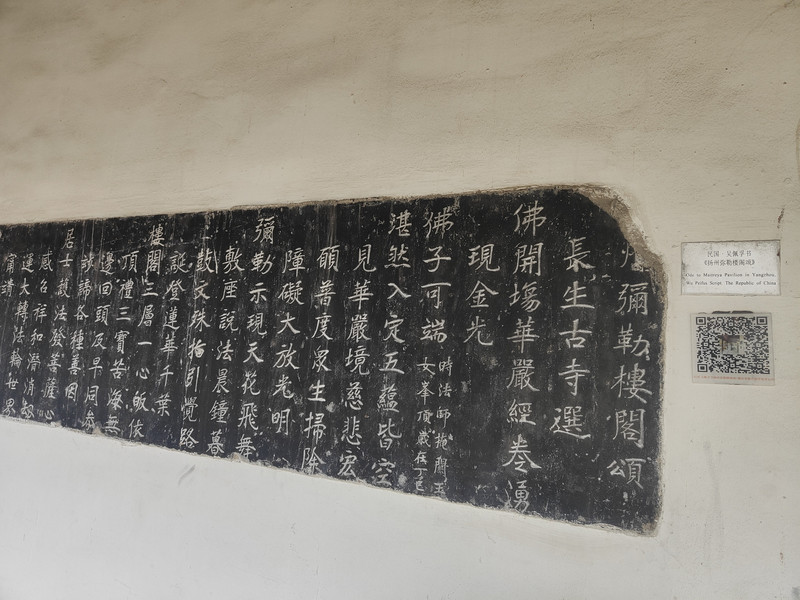 彌勒樓閣頌
長生古寺選
佛開場華嚴經卷湧
現金光
佛子可端時法師施開玉
女峯頂歲在丁巳
湛然入定五蘊皆空
見華嚴境慈悲宏
願普度眾生掃除
障礙大放光明
彌勒示現天花飛舞
敷座說法晨鐘暮
鼓文殊指引覺路
誕登蓮華千葉
樓閣三層一心皈依
頂禮三寶苦海無
邊回頭及早同參
諦各種善因
居士護法發菩薩心
感召祥和潛消
運大轉法輪世界
肅清
民国·吴佩孚书
《扬州弥勒楼阁颂》
Ode to Maitreya Pavilion in Yangzhou,
Wu Peifu Script, The Republic of China